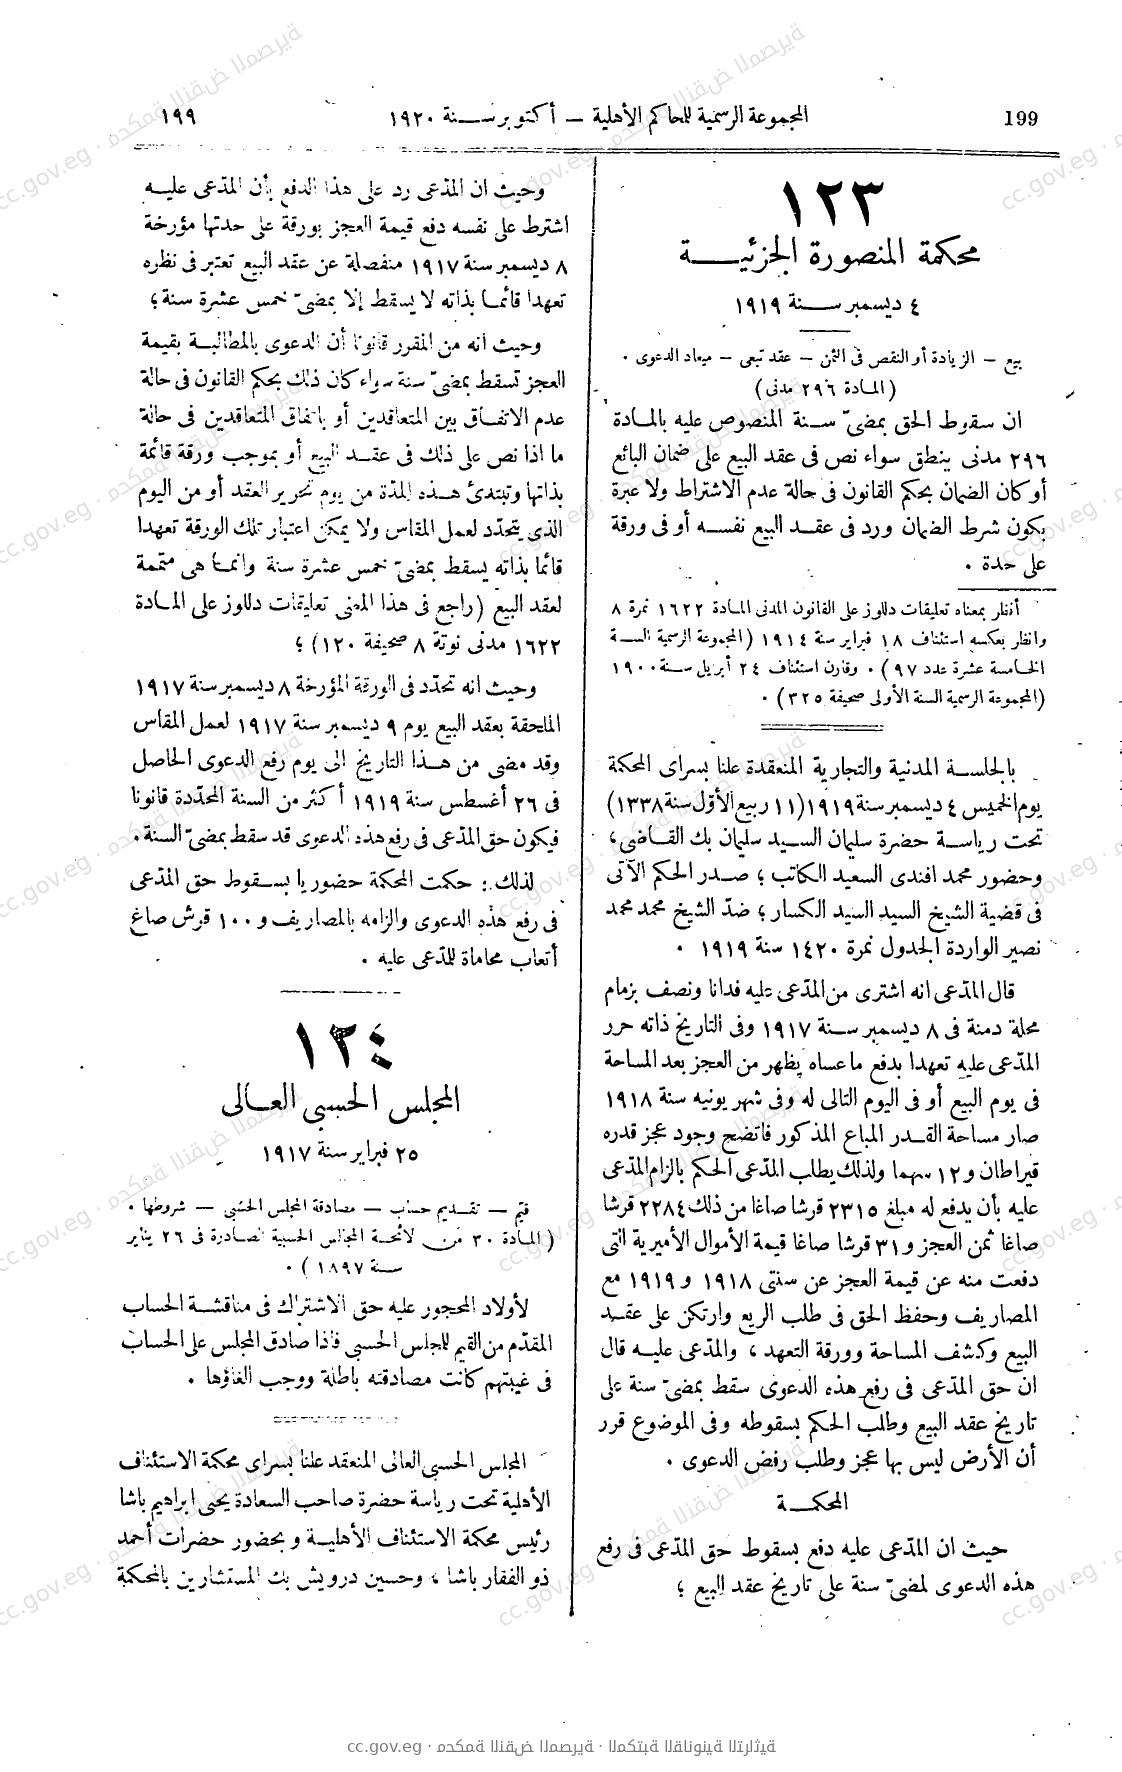 199
المجموعة الرسمية للمحاكم الأهلية — أكتوبر سنة ١٩٢٠
١٩٩
١٢٣
محكمة المنصورة الجزئية
٤ ديسمبر سنة ١٩١٩
بيع — الزيادة أو النقص فى الثمن — عقد تبعى — ميعاد الدعوى .
(المادة ٢٩٦ مدنى)
ان سقوط الحق بمضىّ سنة المنصوص عليه بالمادة
٢٩٦ مدنى ينطبق سواء نص فى عقد البيع على ضمان البائع
أو كان الضمان بحكم القانون فى حالة عدم الاشتراط ولا عبرة
بكون شرط الضمان ورد فى عقد البيع نفسه أو فى ورقة
على حدة .
أنظر بمعناه تعليقات دللوز على القانون المدنى المادة ١٦٢٢ نمرة ٨
وانظر بعكسه استئناف ١٨ فبراير سنة ١٩١٤ (المجموعة الرسمية السنة
الخامسة عشرة عدد ٩٧) . وقارن استئناف ٢٤ أبريل سنة ١٩٠٠
(المجموعة الرسمية السنة الأولى صحيفة ٣٢٥) .
بالجلسة المدنية والتجارية المنعقدة علنا بسراى المحكمة
يوم الخميس ٤ ديسمبر سنة ١٩١٩ (١١ ربيع الأوّل سنة ١٣٣٨)
تحت رياسة حضرة سليمان السيد سليمان بك القاضى،
وحضور محمد افندى السعيد الكاتب؛ صدر الحكم الآتى
فى قضية الشيخ السيد السيد الكسار؛ ضدّ الشيخ محمد محمد
نصير الواردة الجدول نمرة ١٤٢٠ سنة ١٩١٩ .
قال المدّعى انه اشترى من المدّعى عليه فدانا ونصف بزمام
محلة دمنة فى ٨ ديسمبر سنة ١٩١٧ وفى التاريخ ذاته حرر
المدّعى عليه تعهدا بدفع ما عساه يظهر من العجز بعد المساحة
فى يوم البيع أو فى اليوم التالى له وفى شهر يونيه سنة ١٩١٨
صار مساحة القدر المباع المذكور فاتضح وجود عجز قدره
قيراطان و١٢ سهما ولذلك يطلب المدّعى الحكم بالزام المدّعى
عليه بأن يدفع له مبلغ ٢٣١٥ قرشا صاغا من ذلك ٢٢٨٤ قرشا
صاغا ثمن العجز و٣١ قرشا صاغا قيمة الأموال الأميرية التى
دفعت منه عن قيمة العجز عن سنتى ١٩١٨ و ١٩١٩ مع
المصاريف وحفظ الحق فى طلب الريع وارتكن على عقد
البيع وكشف المساحة وورقة التعهد ، والمدّعى عليه قال
ان حق المدّعى فى رفع هذه الدعوى سقط بمضىّ سنة على
تاريخ عقد البيع وطلب الحكم بسقوطه وفى الموضوع قرر
أن الأرض ليس بها عجز وطلب رفض الدعوى .
المحكمة
حيث ان المدّعى عليه دفع بسقوط حق المدّعى فى رفع
هذه الدعوى لمضىّ سنة على تاريخ عقد البيع ؛
وحيث ان المدّعى رد على هذا الدفع بأن المدّعى عليه
اشترط على نفسه دفع قيمة العجز بورقة على حدتها مؤرخة
٨ ديسمبر سنة ١٩١٧ منفصلة عن عقد البيع تعتبر فى نظره
تعهدا قائما بذاته لا يسقط إلا بمضىّ خمس عشرة سنة ؛
وحيث انه من المقرر قانونا أن الدعوى بالمطالبة بقيمة
العجز تسقط بمضىّ سنة سواء كان ذلك بحكم القانون فى حالة
عدم الاتفاق بين المتعاقدين أو باتفاق المتعاقدين فى حالة
ما اذا نص على ذلك فى عقد البيع أو بموجب ورقة قائمة
بذاتها وتبتدئ هذه المدّة من يوم تحرير العقد أو من اليوم
الذى يتحدّد لعمل المقاس ولا يمكن اعتبار تلك الورقة تعهدا
قائما بذاته يسقط بمضىّ خمس عشرة سنة وانما هى متممة
لعقد البيع (راجع فى هذا المعنى تعليقات دللوز على المادة
١٦٢٢ مدنى نوتة ٨ صحيفة ١٢٠) ؛
وحيث انه تحدّد فى الورقة المؤرخة ٨ ديسمبر سنة ١٩١٧
الملحقة بعقد البيع يوم ٩ ديسمبر سنة ١٩١٧ لعمل المقاس
وقد مضى من هذا التاريخ الى يوم رفع الدعوى الحاصل
فى ٢٦ أغسطس سنة ١٩١٩ أكثر من السنة المحدّدة قانونا
فيكون حق المدّعى فى رفع هذه الدعوى قد سقط بمضىّ السنة .
لذلك : حكمت المحكمة حضوريا بسقوط حق المدّعى
فى رفع هذه الدعوى والزامه بالمصاريف و ١٠٠ قرش صاغ
أتعاب محاماة للمدّعى عليه .
١٢٤
المجلس الحسبى العالى
٢٥ فبراير سنة ١٩١٧
قيّم — تقديم حساب — مصادقة المجلس الحسبى — شروطها .
(المادة ٣٠ من لائحة المجالس الحسبية الصادرة فى ٢٦ يناير
سنة ١٨٩٧) .
لأولاد المحجور عليه حق الاشتراك فى مناقشة الحساب
المقدّم من القيم للمجلس الحسبى فاذا صادق المجلس على الحساب
فى غيبتهم كانت مصادقته باطلة ووجب الغاؤها .
المجلس الحسبى العالى المنعقد علنا بسراى محكمة الاستئناف
الأهلية تحت رياسة حضرة صاحب السعادة يحيى ابراهيم باشا
رئيس محكمة الاستئناف الأهلية وبحضور حضرات أحمد
ذو الفقار باشا ، وحسين درويش بك المستشارين بالمحكمة
cc.gov.eg · محكمة النقض المصرية · المكتبة القانونية التراثية